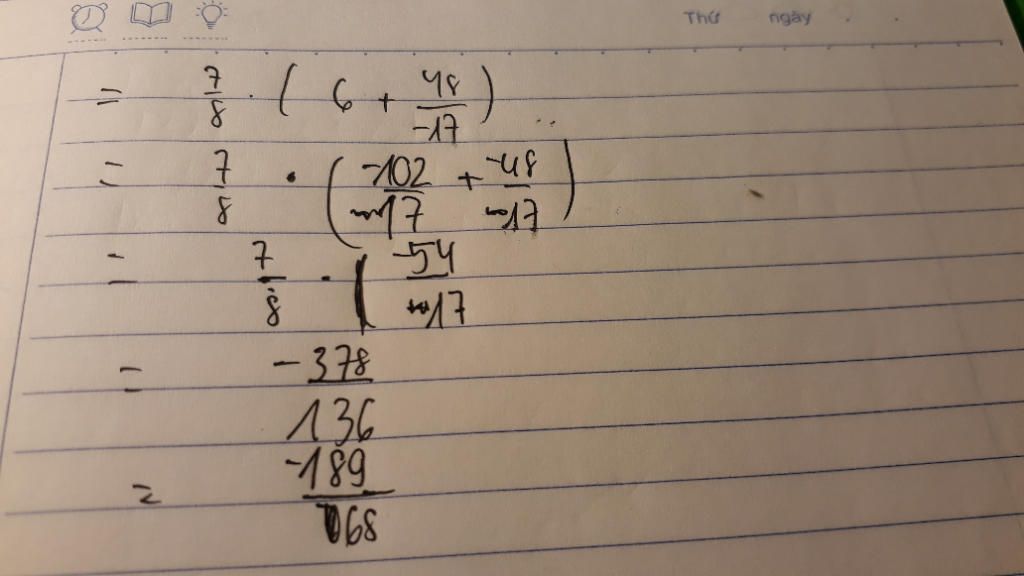 Thứ ngày
= 7/8 . ( 6 + 48/-17 )
= 7/8 . ( -102/17 + -48/17 )
= 7/8 . ( -54/17
= -378/136
= -189/68